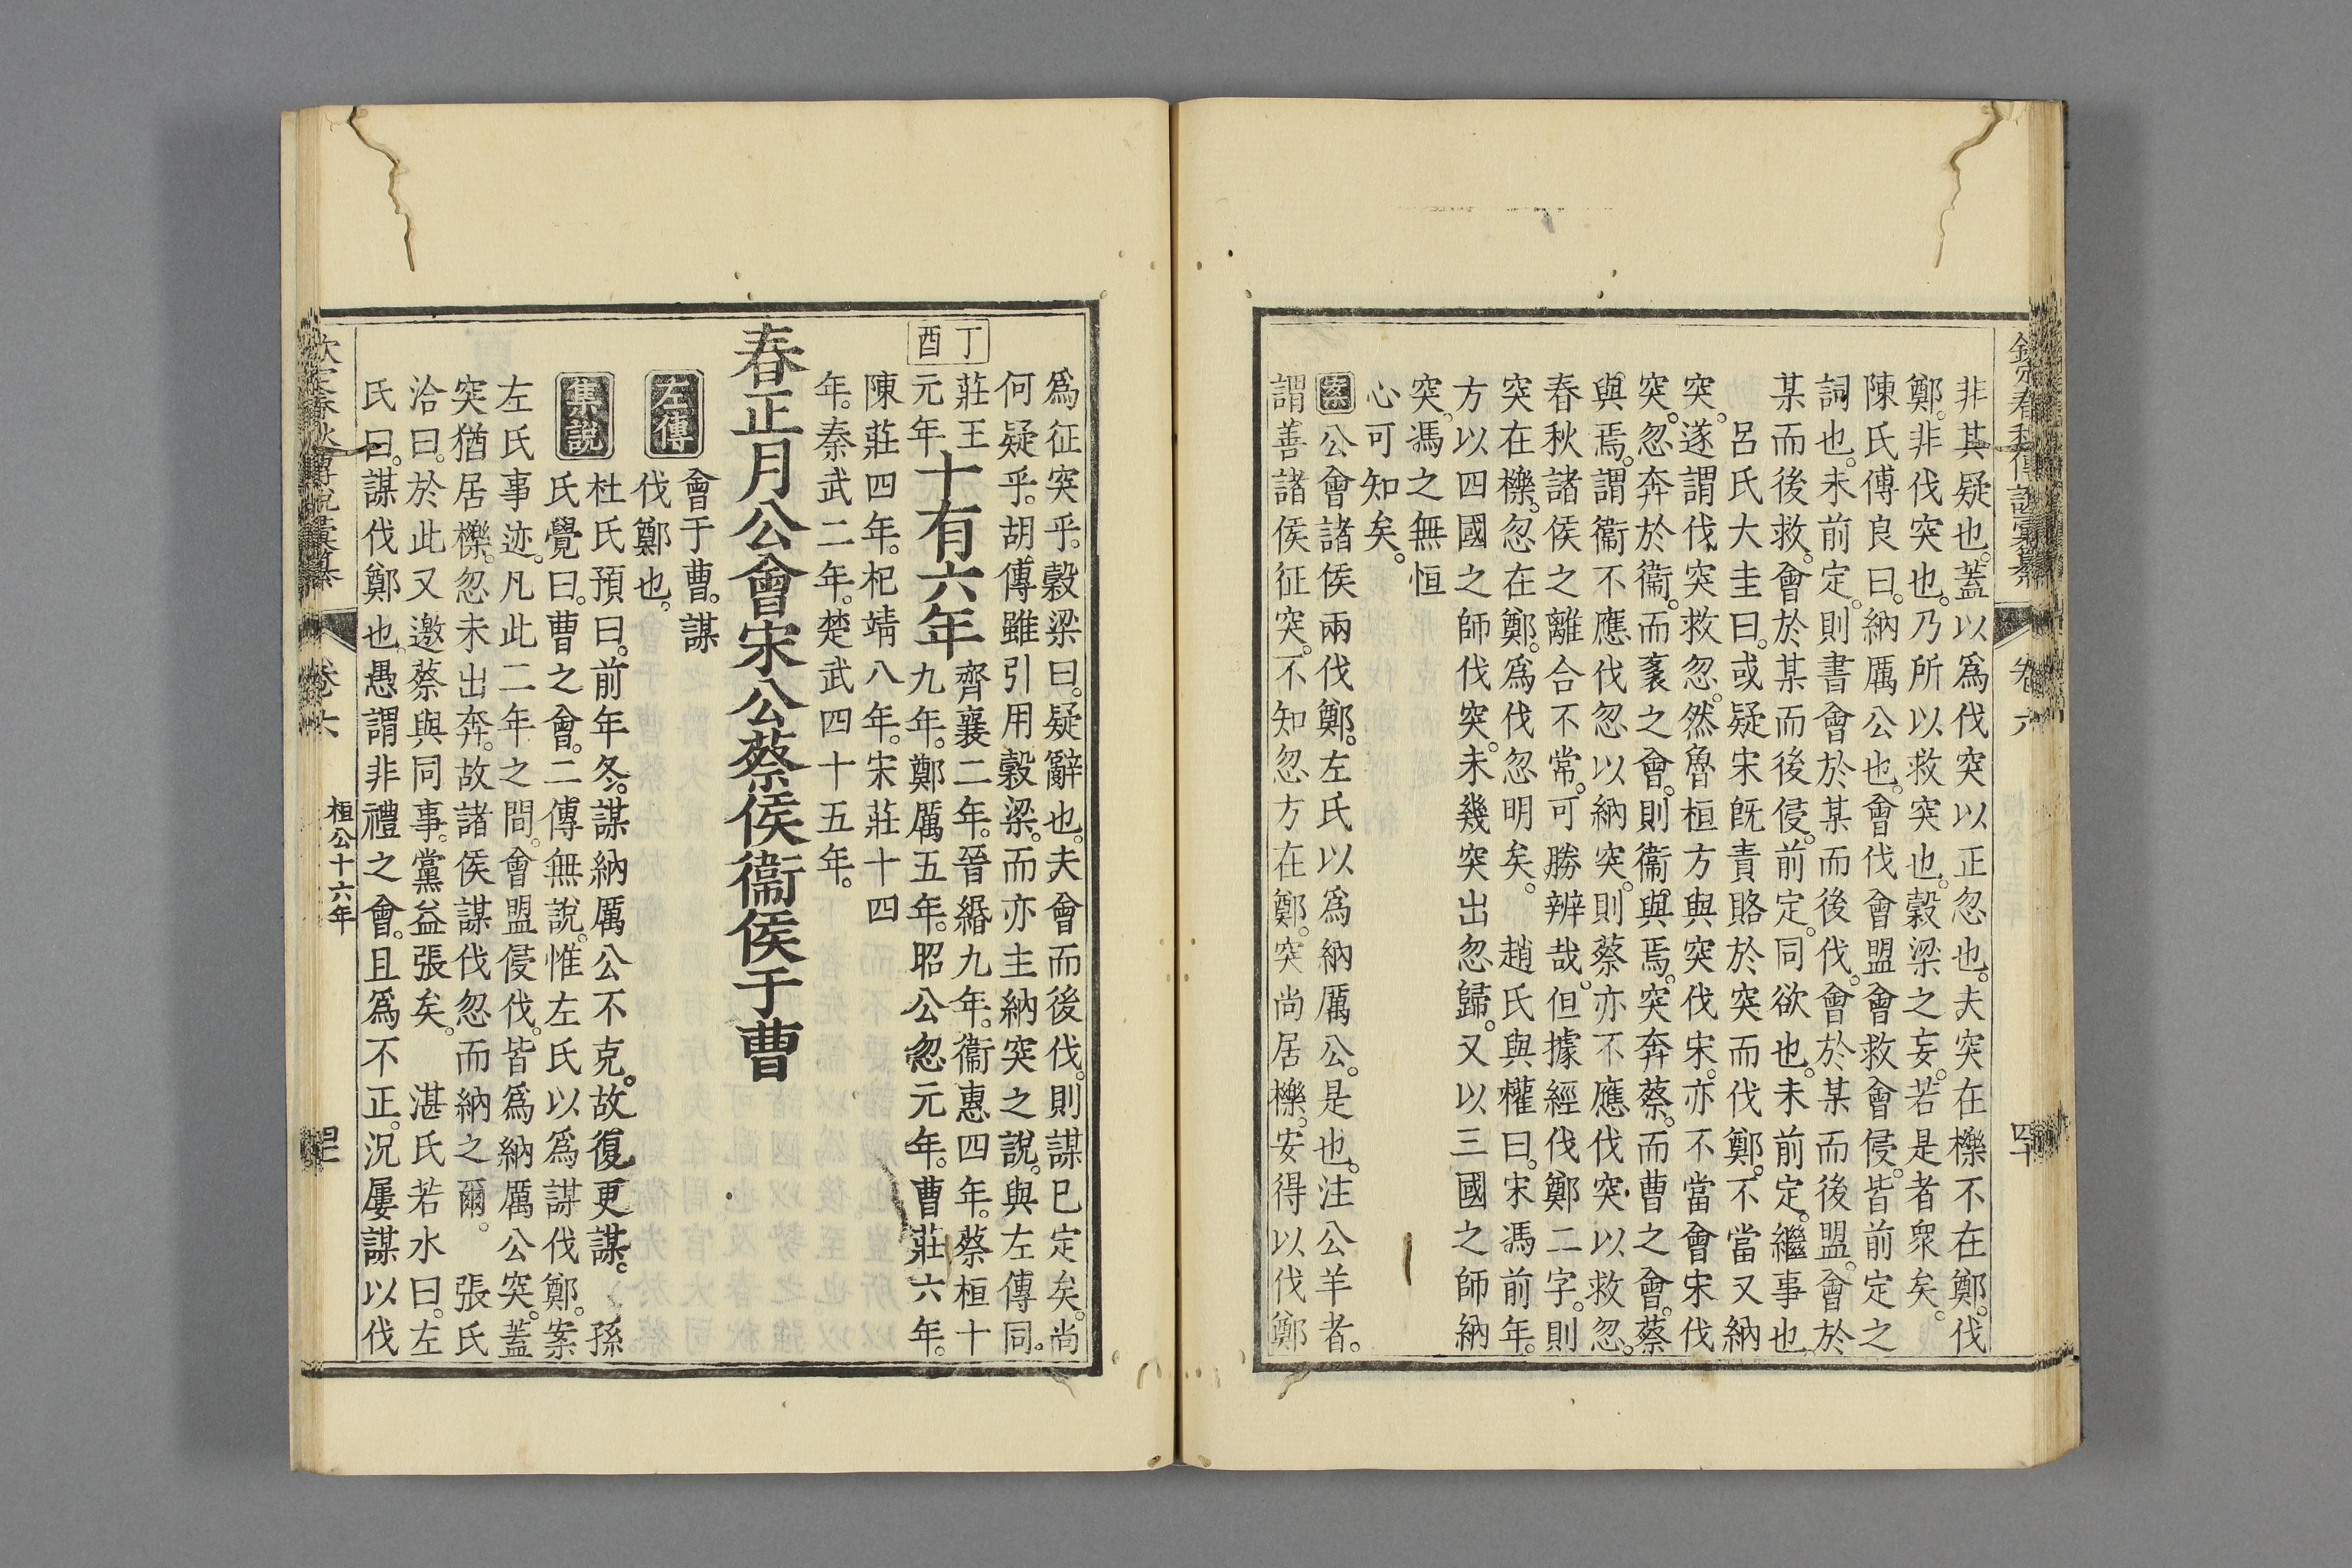 欽定春秋傳說彙纂 卷六 四十
非其疑也。蓋以爲伐突以正忽也。夫突在櫟不在鄭。伐
鄭。非伐突也。乃所以救突也。穀梁之妄。若是者衆矣。
陳氏傅良曰。納厲公也。會伐會盟會救會侵。皆前定之
詞也。未前定。則書會於某而後伐。會於某而後盟。會於
某而後救。會於某而後侵。前定。同欲也。未前定。繼事也。
呂氏大圭曰。或疑宋旣責賂於突而伐鄭。不當又納
突。遂謂伐突救忽。然魯桓方與突伐宋。亦不當會宋伐
突。忽奔於衞。而袤之會。則衞與焉。突奔蔡。而曹之會。蔡
與焉。謂衞不應伐忽以納突。則蔡亦不應伐突以救忽。
春秋諸侯之離合不常。可勝辨哉。但據經伐鄭二字。則
突在櫟。忽在鄭。爲伐忽明矣。 趙氏與權曰。宋馮前年。
方以四國之師伐突。未幾突出忽歸。又以三國之師納
突。馮之無恒
心可知矣。
案公會諸侯兩伐鄭。左氏以爲納厲公。是也。注公羊者。
謂善諸侯征突。不知忽方在鄭。突尚居櫟。安得以伐鄭
爲征突乎。穀梁曰。疑辭也。夫會而後伐。則謀已定矣。尚
何疑乎。胡傳雖引用穀梁。而亦主納突之說。與左傳同。
丁酉
莊王元年十有六年齊襄二年。晉緡九年。衞惠四年。蔡桓十
九年。鄭厲五年。昭公忽元年。曹莊六年。
陳莊四年。杞靖八年。宋莊十四
年。秦武二年。楚武四十五年。
春正月公會宋公蔡侯衞侯于曹
左傳 會于曹。謀
伐鄭也。
集說 杜氏預曰。前年冬。謀納厲公不克。故復更謀。 孫
氏覺曰。曹之會。二傳無說。惟左氏以爲謀伐鄭。案
左氏事迹。凡此二年之間。會盟侵伐。皆爲納厲公突。蓋
突猶居櫟。忽未出奔。故諸侯謀伐忽而納之爾。 張氏
洽曰。於此又邀蔡與同事。黨益張矣。 湛氏若水曰。左
氏曰。謀伐鄭也。愚謂非禮之會。且爲不正。況屢謀以伐
卷六 桓公十六年